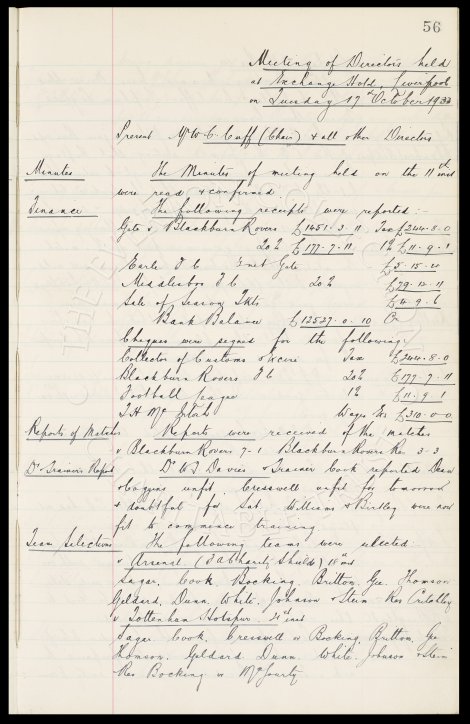 56
Meeting of Directors held
at Exchange Hotel, Liverpool
on Tuesday 17th October 1933
Present Mr W. C. Cuff (Chair) & all other Directors
Minutes The Minutes of meeting held on the 11th inst
were read & confirmed
Finance The following receipts were reported:-
Gate v Blackburn Rovers £1451-3-11 Tax £244-8-0
20% £177-7-11 1% £11-9-1
Earle F C Gate £5-15-0
Middlesbro F C 20% £79-12-11
Sale of Season Tkts £4-9-6
Bank Balance £12527-0-10 Cr
Cheques were signed for the following
Collector of Customs & Excise Tax £244-8-0
Blackburn Rovers F C 20% £177-7-11
Football League 1% £11-9-1
T. H. McIntosh Wages &c £310-0-0
Reports of Matches Reports were received of the matches
v Blackburn Rovers 7-1 Blackburn Rovers Res 3-3
Dr & Trainer's Report Dr W. J. Davies & Trainer Cook reported Dean
& Coggins unfit. Cresswell unfit for tomorrow
& doubtful for Sat. Williams & Birtley were now
fit to commence training.
Team Selections The following teams were selected:-
v Arsenal (F.A. Charity Shield) 18th inst
Sagar, Cook, Bocking, Britton, Gee, Thomson
Geldard, Dunn, White, Johnson & Stein. Res Critchley
v Tottenham Hotspur. 21st inst
Sagar, Cook, Cresswell or Bocking, Britton, Gee
Thomson, Geldard, Dunn, White, Johnson & Stein
Res Bocking or McGourty